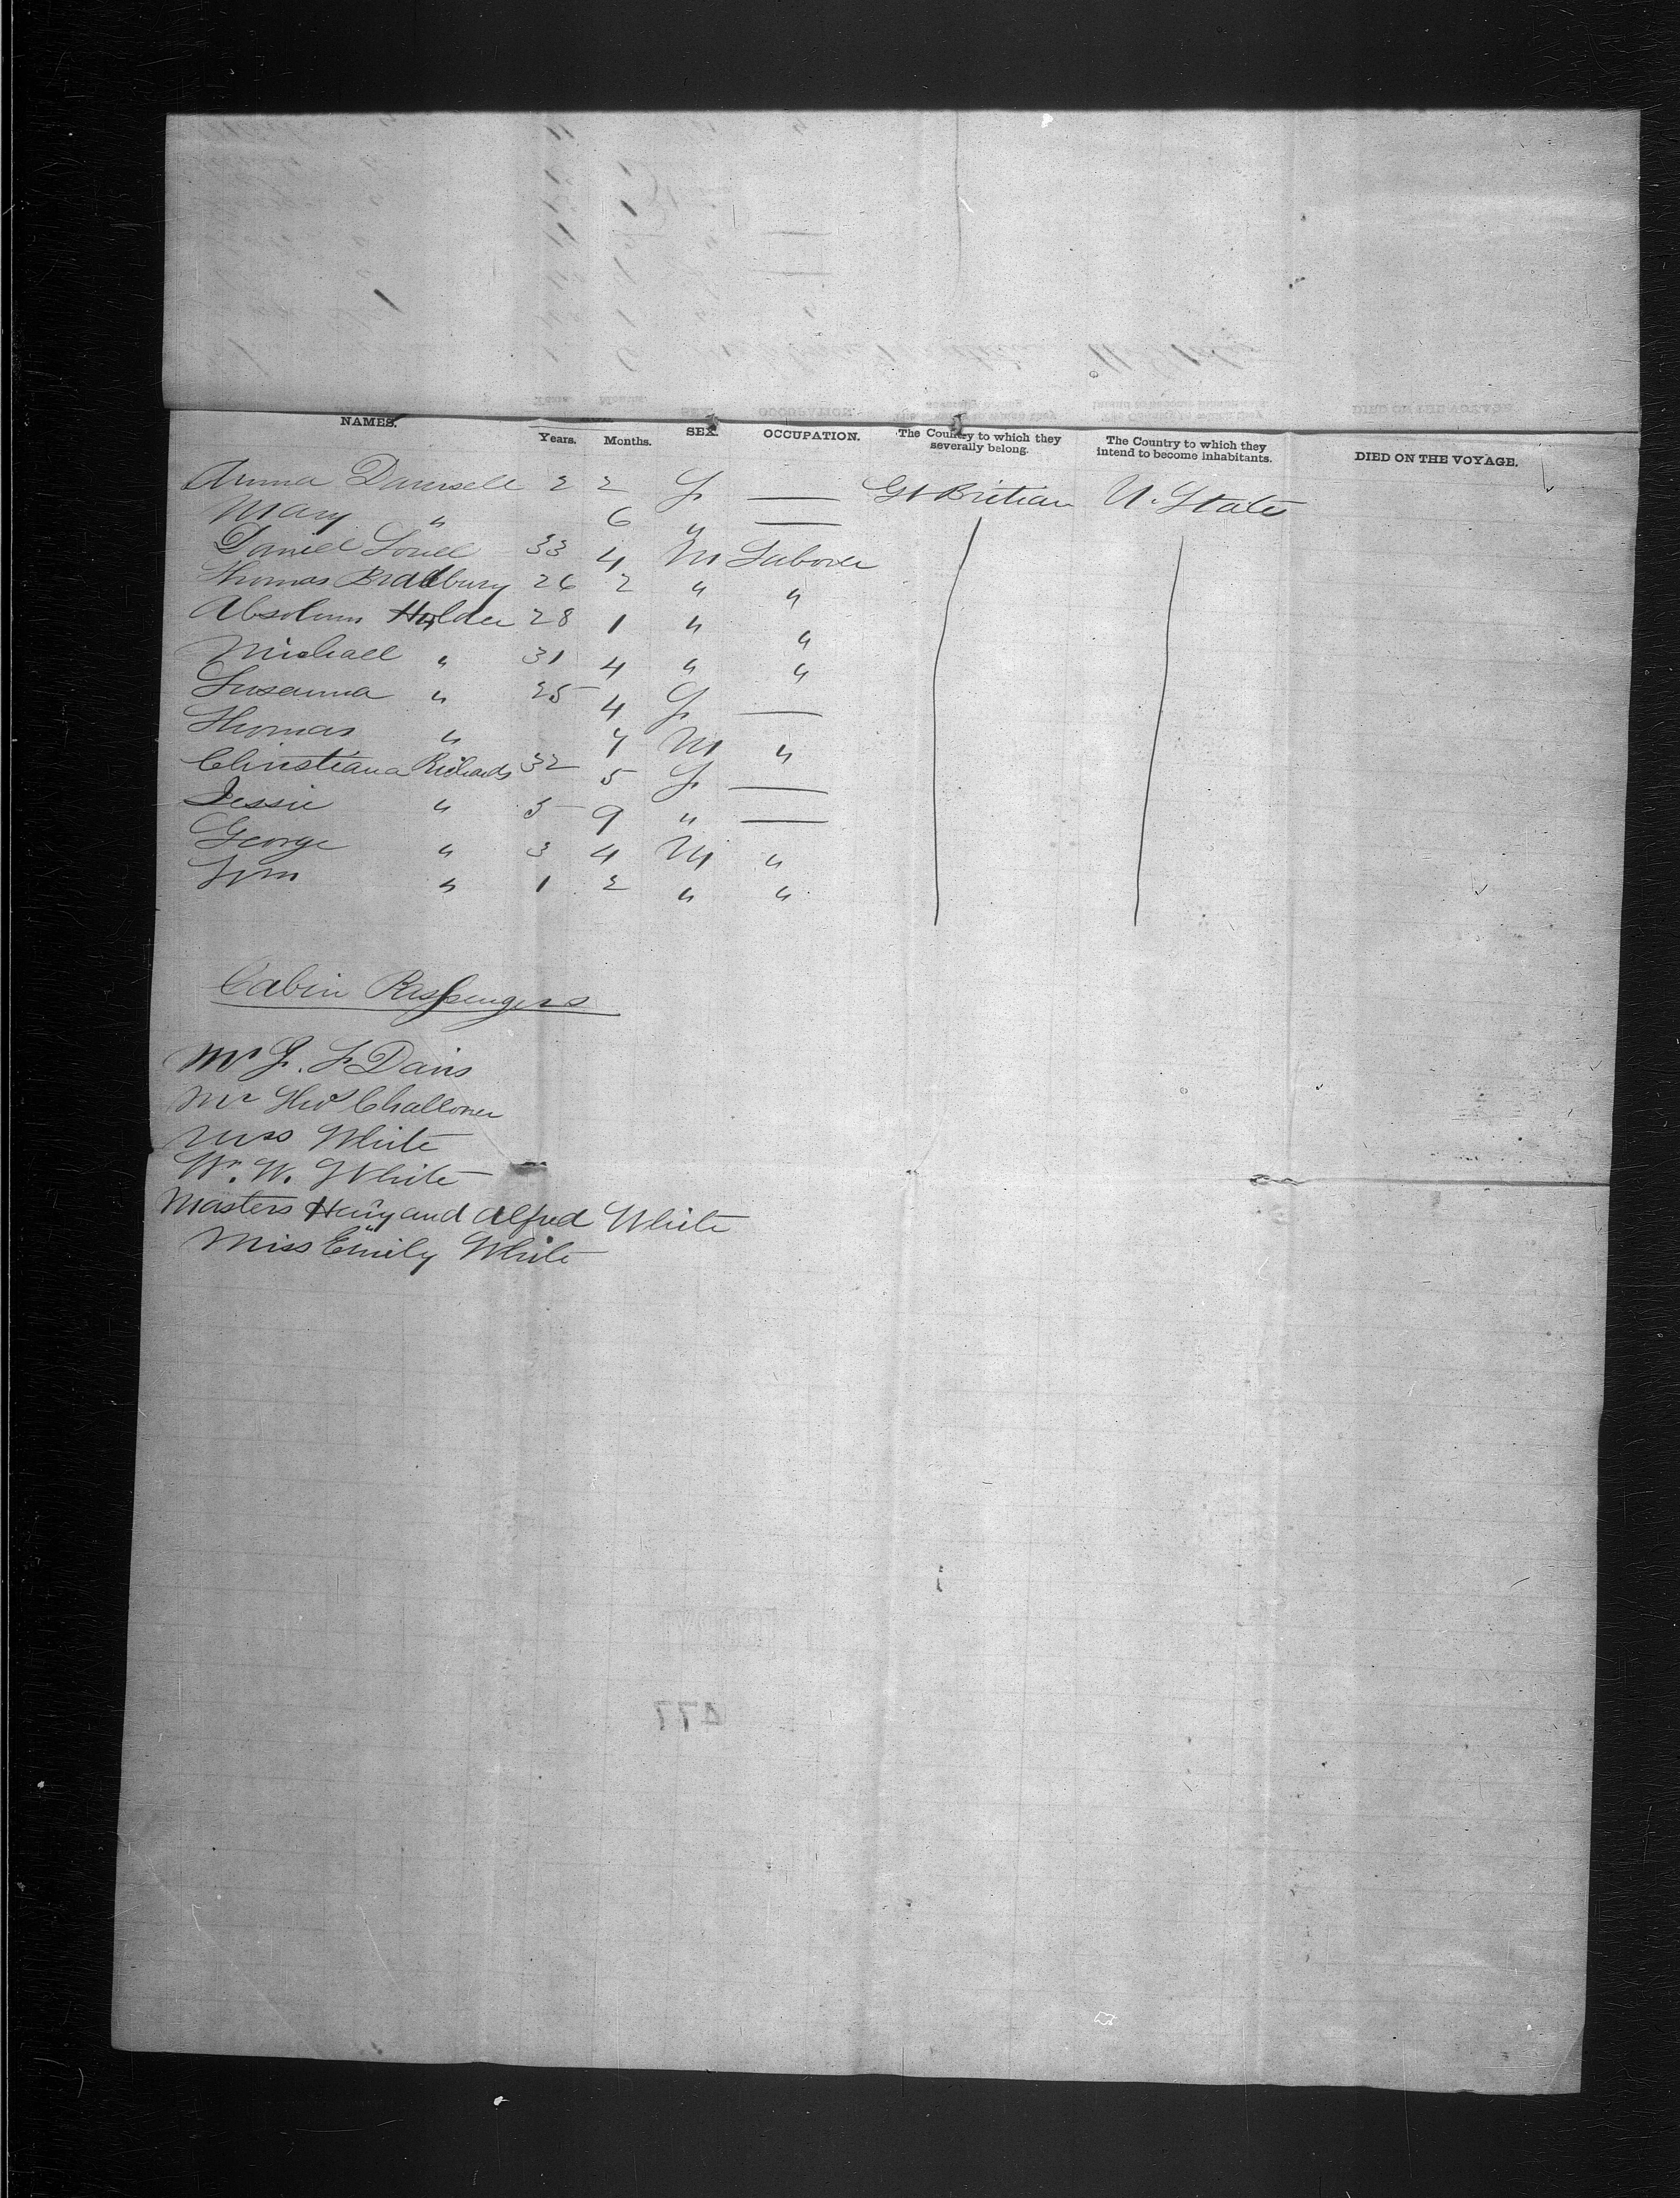 NAMES. Years. Months. SEX. OCCUPATION. The Country to which they severally belong. The Country to which they intend to become inhabitants. DIED ON THE VOYAGE.
Anna Damsell 2 2 F — Gt Britian U. States
Mary " 6 " —
Daniel 33 4 M Laborer
Thomas Bradbury 26 2 " "
Absolum Holder 28 1 " "
Michael " 31 4 " "
Susanna " 25 4 F —
Thomas " 7 M "
Christiana Richards 32 5 F —
Jessie " 5 9 " —
George " 3 4 M "
Wm " 1 2 " "
Cabin Passengers
Mr J. F Davis
Mr Thos Challoner
Mrs White
W. White
Masters Harry and Alfred White
Miss Emily White
477